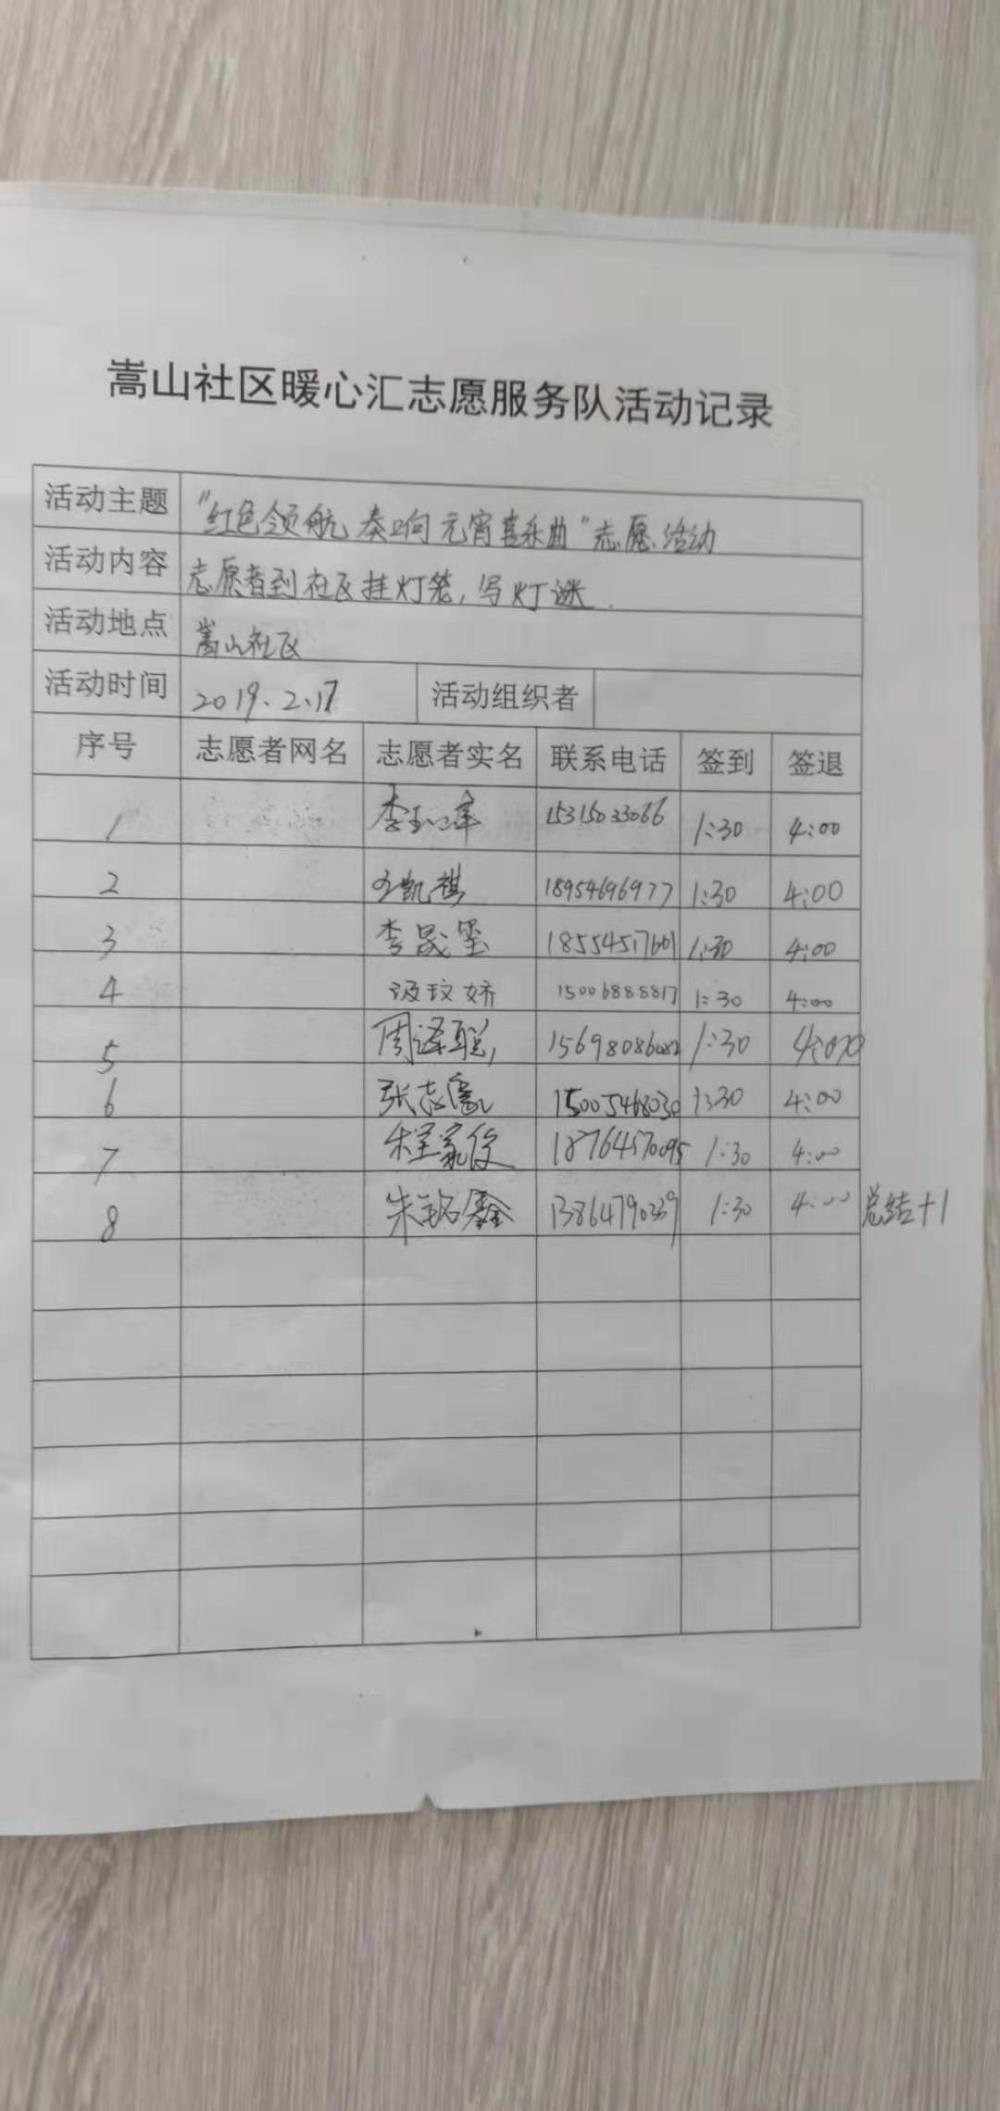 嵩山社区暖心汇志愿服务队活动记录
活动主题 "红色领航 奏响元宵喜乐曲"志愿活动
活动内容 志愿者到社区挂灯笼,写灯谜.
活动地点 嵩山社区
活动时间 2019.2.17 活动组织者
序号 志愿者网名 志愿者实名 联系电话 签到 签退
1 15315033066 1:30 4:00
2 王凯祺 18954696977 1:30 4:00
3 李晟玺 18554517601 1:30 4:00
4 汲玟娇 15006888817 1:30 4:00
5 周泽聪 1:30 4:00
6 15005468030 1:30 4:00
7 程家俊 18764570095 1:30 4:00
8 朱铭鑫 13864790239 1:30 4:00 总结+1